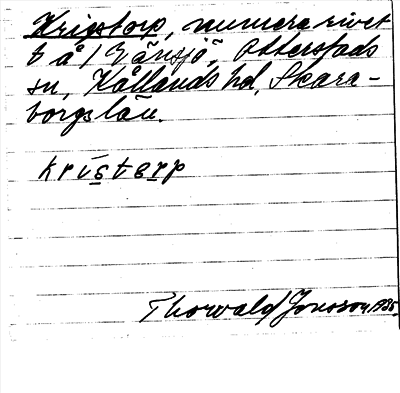 Krigstorp, numera rivet
t å / Vänsjö, Otterstads
sn, Kållands hd, Skara-
borgs län.
kristorp
Thorvald Jonsson 1935.